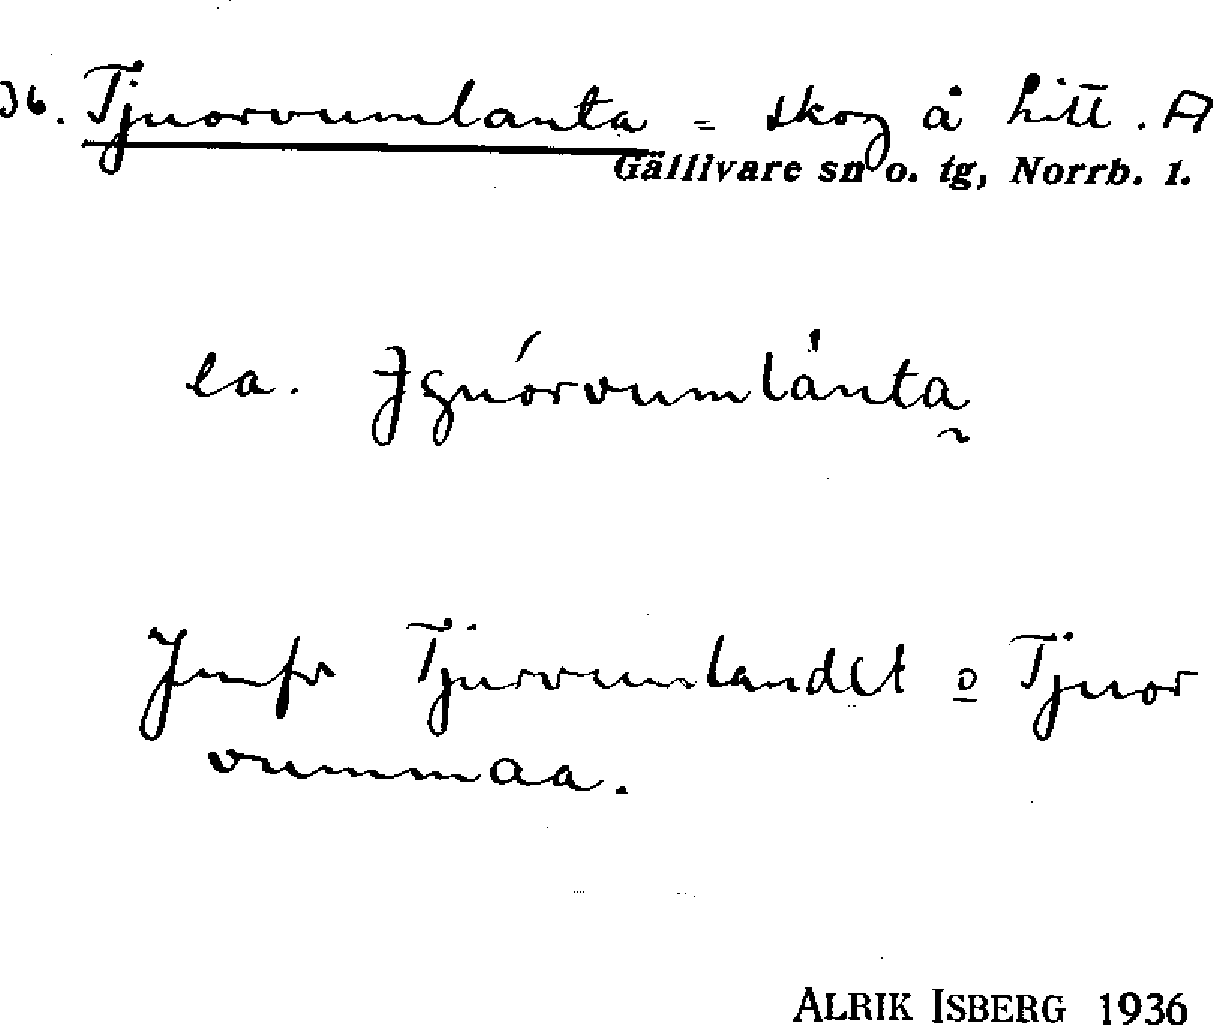 36. Tjuorvumlanta = skog å hitt. A
Gällivare sn o. tg, Norrb. l.
la.
Jmfr Tjurvumlandet o Tjuor
vummaa.
ALRIK ISBERG 1936